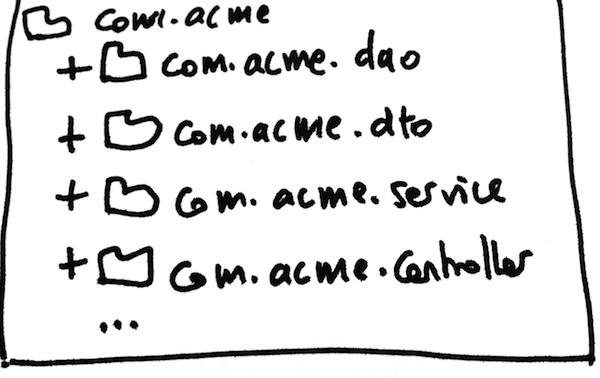 com.acme
+ com.acme.dao
+ com.acme.dto
+ com.acme.service
+ com.acme.controller
...